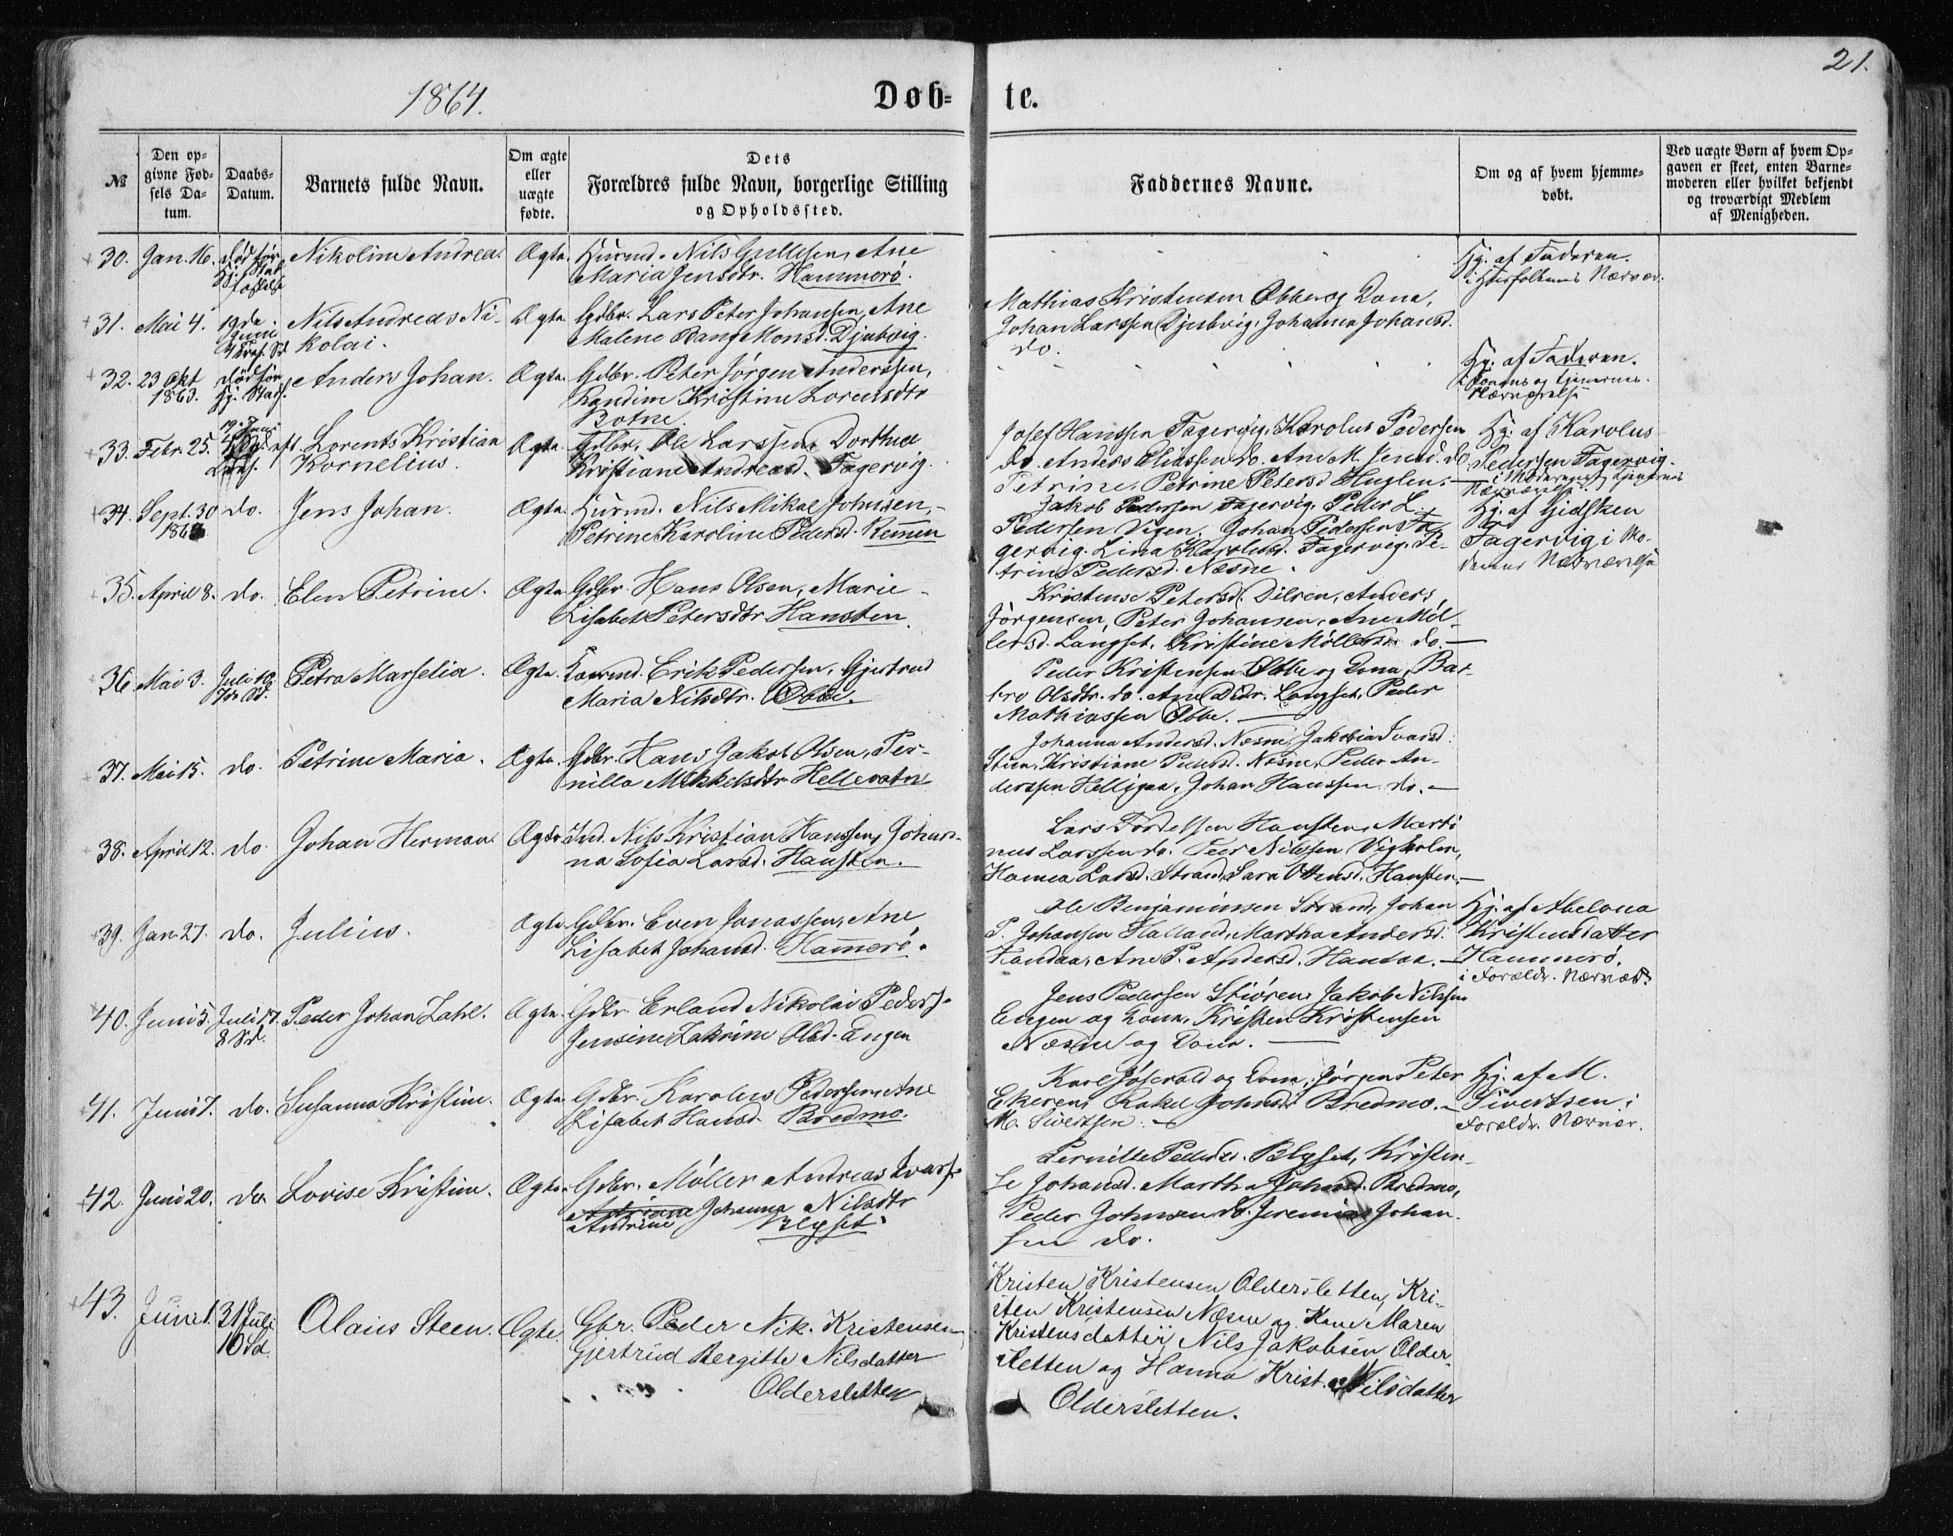 21.
1864.
Døb- te.
№
Den opgivne Fødsels Datum.
Daabs-Datum.
Barnets fulde Navn.
Om ægte eller uægte fødte.
Dets Forældres fulde Navn, borgerlige Stilling og Opholdssted.
Faddernes Navne.
Om og af hvem hjemmedøbt.
Ved uægte Børn af hvem Opgaven er skeet, enten Barnemoderen eller hvilket bekjendt og troværdigt Medlem af Menigheden.
30. Jan. 16. død før Nikoline Andrea. Ægte. Huusmd. Nils Gullesen, Ane
Maria Jensdtr. Hammerö.
Hj. af Faderen.
i Huusfolkenes Nærvær.
31. Mai 4. 19de Juni Nils Andreas Ni-
kolai.
Ægte. Gdbr. Lars Peter Johansen, Ane
Malene Bang Monsd. Djubvig.
Mathias Kristensen Øbbe og Kona,
Johan Larssen Djubvig, Johanna Johansd.
do.
32. 23 Okt. 1863. død før Anders Johan. Ægte. Gdbr. Peter Jørgen Anderssen,
Randine Kristine Lorensdtr
Botne
Hj. af Faderen.
Konens og Tjenernes
Nærværelse
33. Febr. 25. Lorents Kristian
Kornelius.
Ægte. Gdbr. Ole Larssen, Dorthea
Kristiane Andreasd. Fagervig.
Josef Hanssen Fagervig, Karolus Pedersen
do. Anders Eliassen do. Ane M. Jensd. do
Petrine, Petrine Petersd. Huglen.
Hj. af Karolus
Pedersen Fagervig.
i Moderens og Tjenernes
Nærværelse.
34. Sept. 30 do. Jens Johan. Ægte. Huusmd. Nils Mikal Johnsen,
Petrine Karoline Pedersd. Remmen
Jakob Pedersen Fagervig, Peder L.
Pedersen Vigen, Johan Pedersen Fa-
gervig. Lina Karolusd. Fagervig, Pe-
trine Pedersd. Næsne.
Hj. af Gidsken
Fagervig i Mo-
derens Nærværelse
35. April 8. do. Elen Petrine. Ægte. Gdbr. Hans Olsen, Marie
Lisabet Petersdtr Hansten.
Kristense Petersd. Dilren, Anders
Jørgensen, Peter Johansen, Ane Møl-
lersd. Langset, Kristine Møllersd. do.
36. Mai 3. Juli 10. Petra Marselia. Ægte. Huusmd. Erik Pedersen, Gjertrud
Maria Nilsdtr. Øbbe.
Peder Kristensen Øbbe og Kona, Bar-
bro Olsdtr. do. Ane Didr. Langset, Peder
Mathiassen Øbbe.
37. Mai 15. do. Petrine Maria. Ægte. Gdbr. Hans Jakob Olsen, Per-
nilla Mikkelsdtr. Hellevatn
Johanna Andersd. Næsne, Jakobia Ivarsd.
Stien, Kristiane Pedersd. Næsne, Peder An-
derssen Helligen, Johan Hanssen do.
38. April 12. do. Johan Herman. Ægte. Ind. Nils Kristian Hanssen, Johan-
na Sofia Larsd. Hansten.
Lars Hansten, Marti-
nus Larssen do. Peder Nilssen Vigholm,
Hanna Larsd. Strand, Sara Ottensd. Hansten.
39. Jan. 27. do. Julius. Ægte. Gdbr. Even Jonassen, Ane
Lisabet Johansd. Hammerö.
Ole Benjaminsen Strand, Johan
P. Johansen Halland, Martha Andersd.
Handaa, Ane P. Andersd. Handaa.
Hj. af Abelona
Kristensdatter
Hammerö.
i Forældr. Nærvær.
40. Juni 5. Juli 17. Peder Johan Zahl. Ægte. Gdbr. Erland Nikolai Peders.
Jensine Zakrine Olsd. Engen
Jens Pedersen Stiøren, Jakob Nilsen
Engen og Kona, Kristen Kristensen
Næsne og Kona.
41. Juni 7. do. Susanna Kristine. Ægte. Gdbr. Karolus Pedersen, Ane
Lisabet Hansd. Bredmo.
Karl Josevald og Kona, Jørgen Peter
Ekeren, Rakel Johnsd. Bredmo.
M. Sivertsen.
Hj. af M.
Sivertsen i
Forældr. Nærvær.
42. Juni 20. do Lovise Kristine. Ægte. Gdbr. Møller Andreas Ivars.
Andrine Johanna Nilsdtr
Blegset.
Pernille Pedersd. Blegset, Kristen-
se Johansd. Martha Johnsd. Bredmo,
Peder Johnsen do. Jeremias Johan-
sen do.
43. Juni 1. 31 Juli 10 Sd. Olaus Steen. Ægte. Gbr. Peder Nik. Kristensen,
Gjertrud Bergitte Nilsdatter
Oldersletten
Kristen Kristensen Oldersletten, Kri-
sten Kristensen Næsne og Kone Maren
Kristensdatter, Nils Jakobsen Older-
sletten og Hanna Krist. Nilsdatter
Oldersletten.